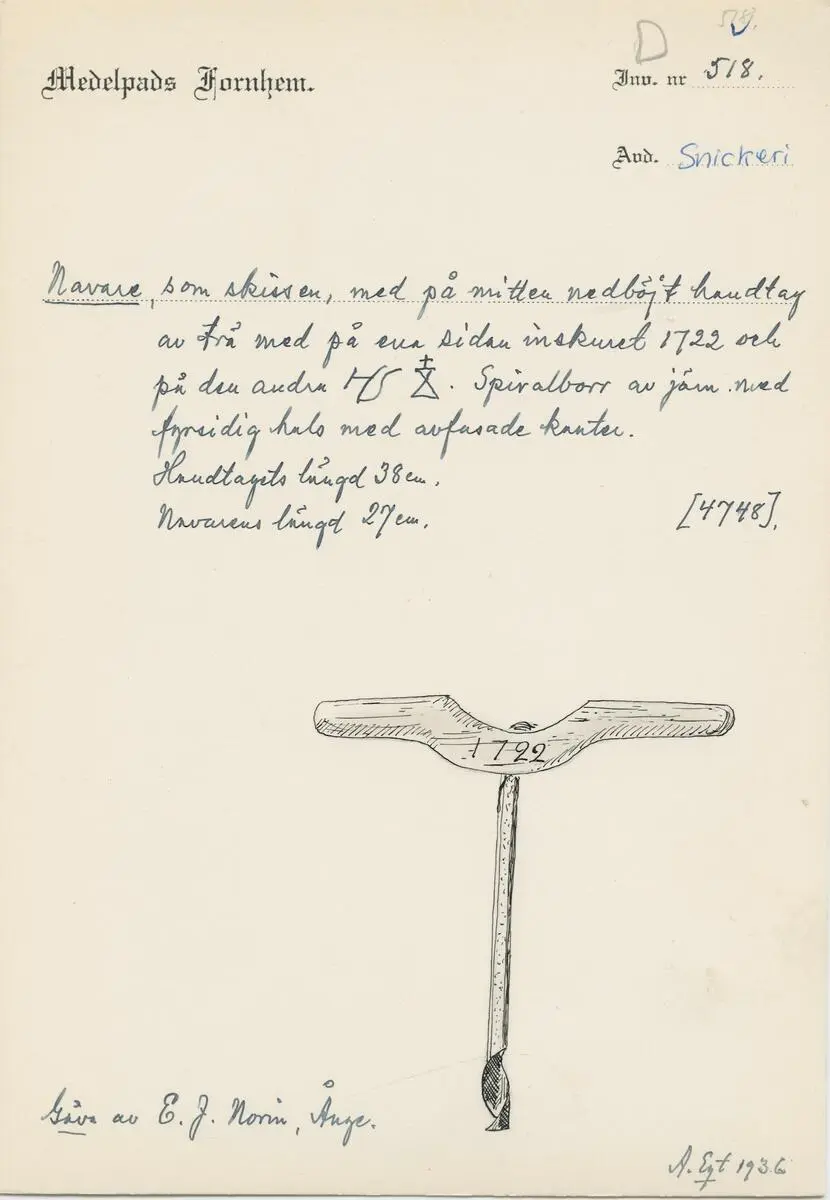 D 518.
Medelpads Fornhem.
Inv. nr 518.
Avd. Snickeri
Navare, som skissen, med på mitten nedböjt handtag
av trä med på ena sidan inskuret 1722 och
på den andra. Spiralborr av järn med
fyrsidig hals med avfasade kanter.
Handtagets längd 38 cm.
Navarens längd 27 cm. [4748].
1722
Gåva av E. J. Norin, Ånge.
A. Eqt 1936